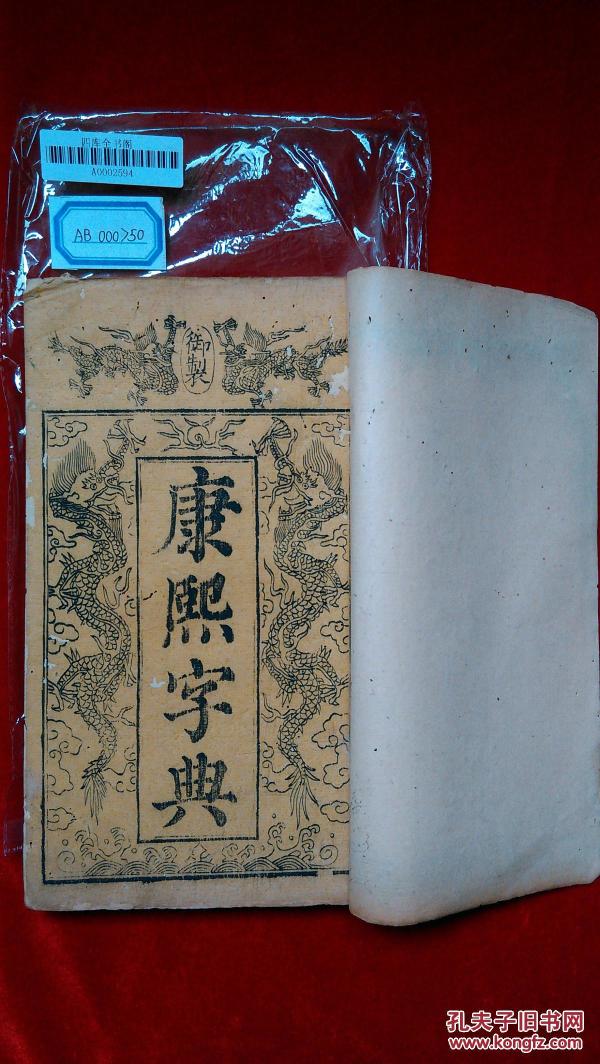 四库全书阁
A0002594
AB 000750
御製
康熙字典
孔夫子旧书网
www.kongfz.com